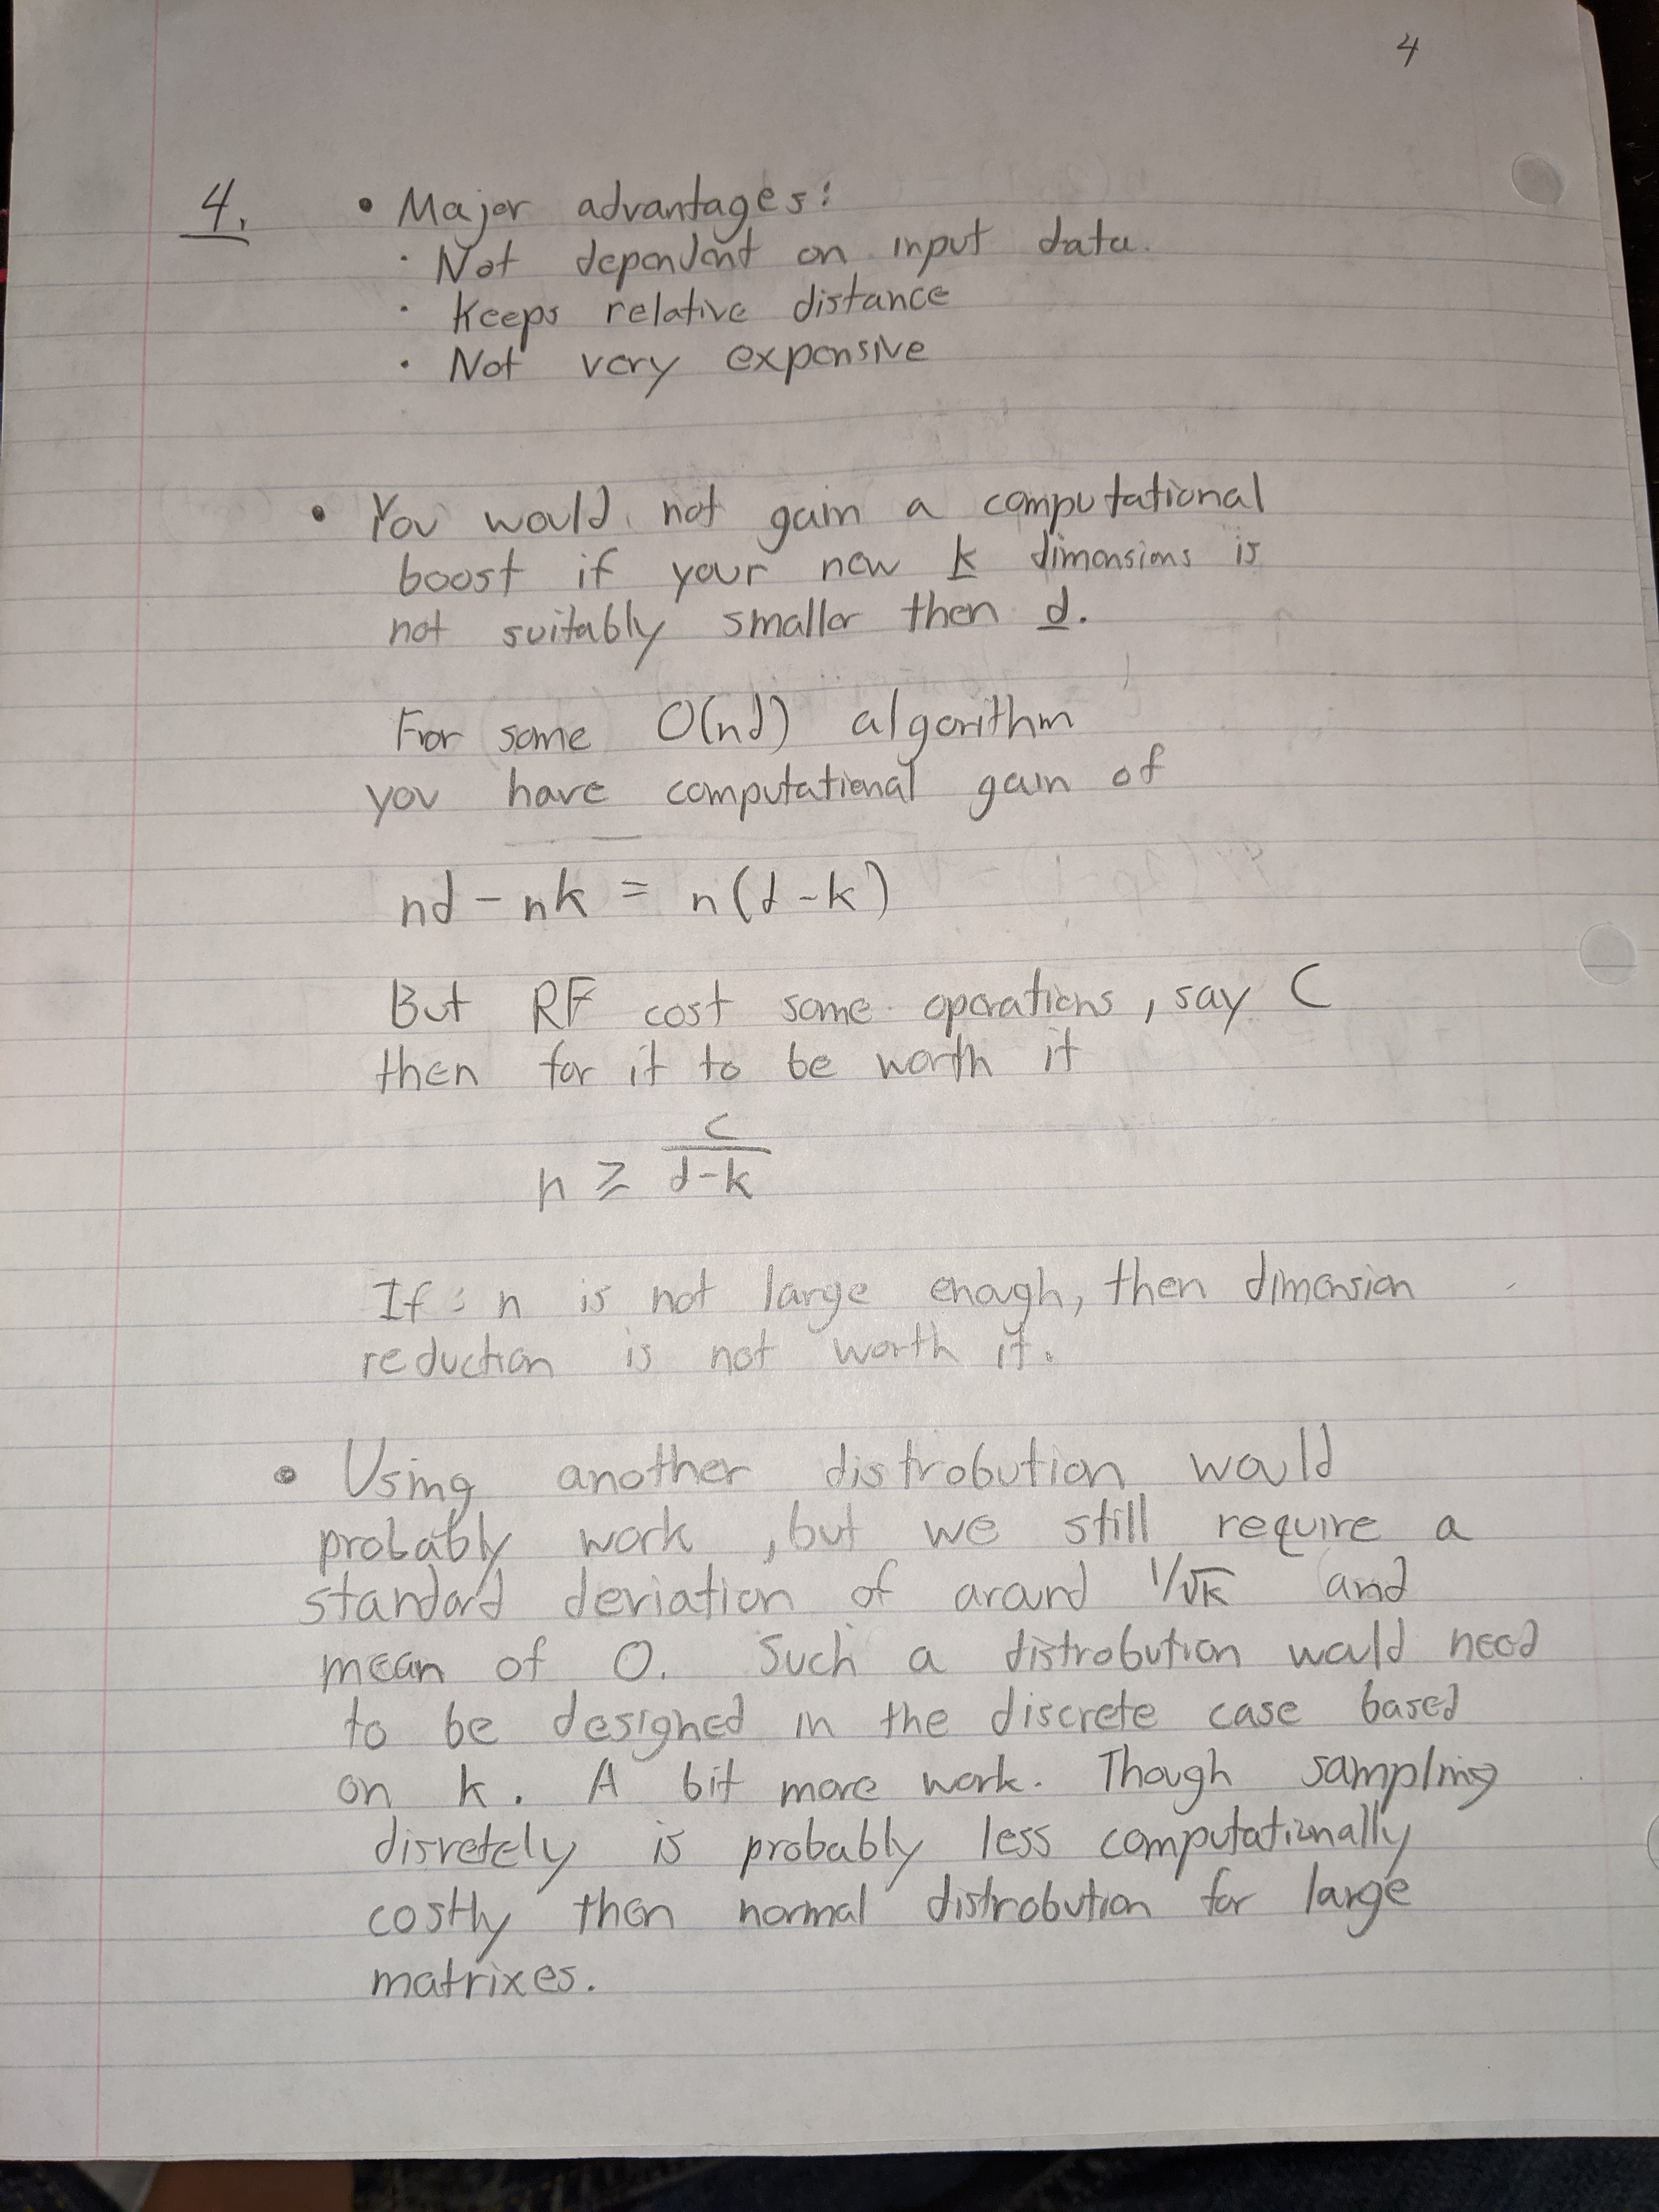 4
4. • Major advantages:
· Not dependent on input data.
· Keeps relative distance
· Not very expensive
• You would not gain a computational
boost if your new k dimensions is
not suitably smaller then d.
For some O(nd) algorithm
you have computational gain of
nd - nk = n(d-k)
But RF cost some operations, say C
then for it to be worth it
n ≥ C/(d-k)
If : n is not large enough, then dimension
reduction is not worth it.
• Using another distrobution would
probably work, but we still require a
standard deviation of around 1/√k and
mean of 0. Such a distrobution would need
to be designed in the discrete case based
on k. A bit more work. Though sampling
disretely is probably less computationally
costly then normal distrobution for large
matrixes.